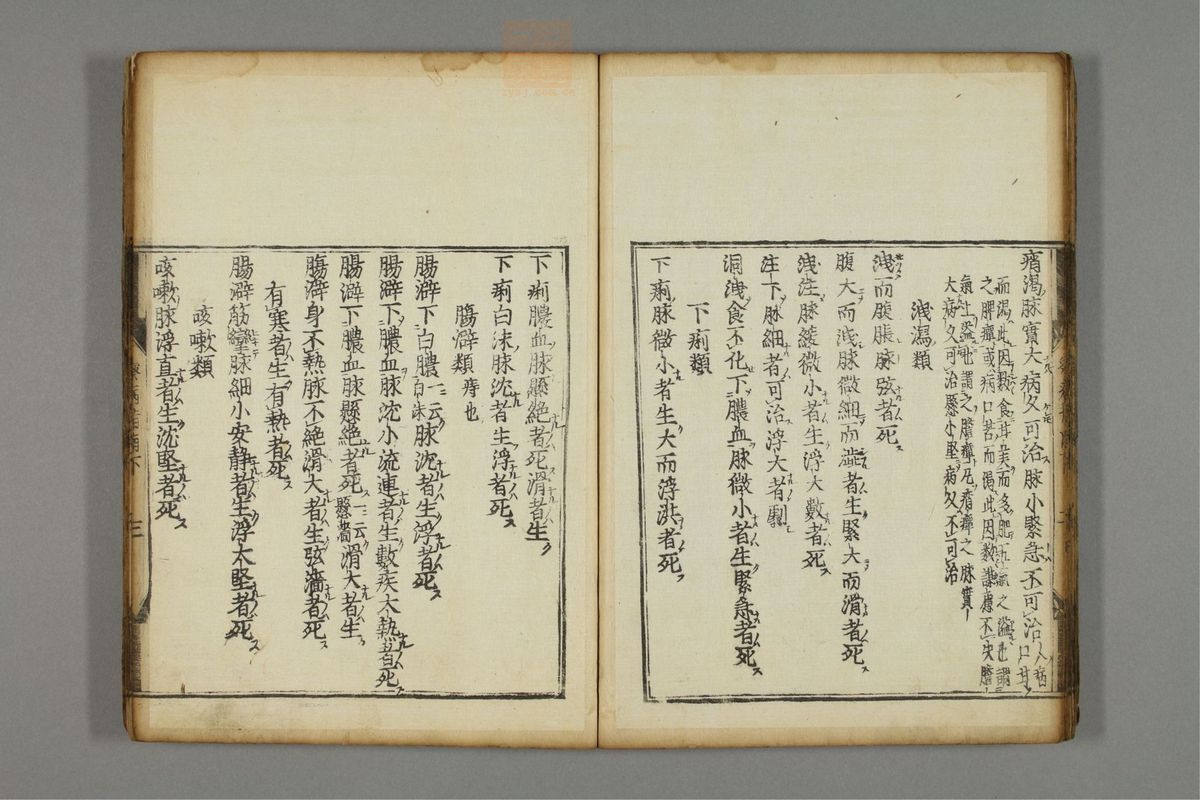 痟渇脉實大病久可治脉小緊急不可治人病口甘
而渇此因數食甘美而多肥五氣之溢也謂
之脾癉或病口苦而渇此因數謀慮不决膽
氣上溢也謂之膽癉凡痟癉之脉實
大病久可治懸小堅病久不可治
洩瀉類
洩而腹脹脉弦者死
腹大而洩脉微細而澁者生緊大而滑者死
洩注脉緩微小者生浮大數者死
注下脉細者可治浮大者劇
洞洩食不化下膿血脉微小者生緊急者死
下痢類
下痢脉微小者生大而浮洪者死
下痢膿血脉懸絶者死滑者生
下痢白沫脉沈者生浮者死
腸澼類 痔也
腸澼下白膿一云白沫脉沈者生浮者死
腸澼下膿血脉沈小流連者生數疾大熱者死
腸澼下膿血脉懸絶者死一云懸濇滑大者生
腸澼身不熱脉不絶滑大者生弦濇者死
有寒者生有熱者死
腸澼筋攣脉細小安静者生浮大堅者死
咳嗽類
咳嗽脉浮直者生沈堅者死